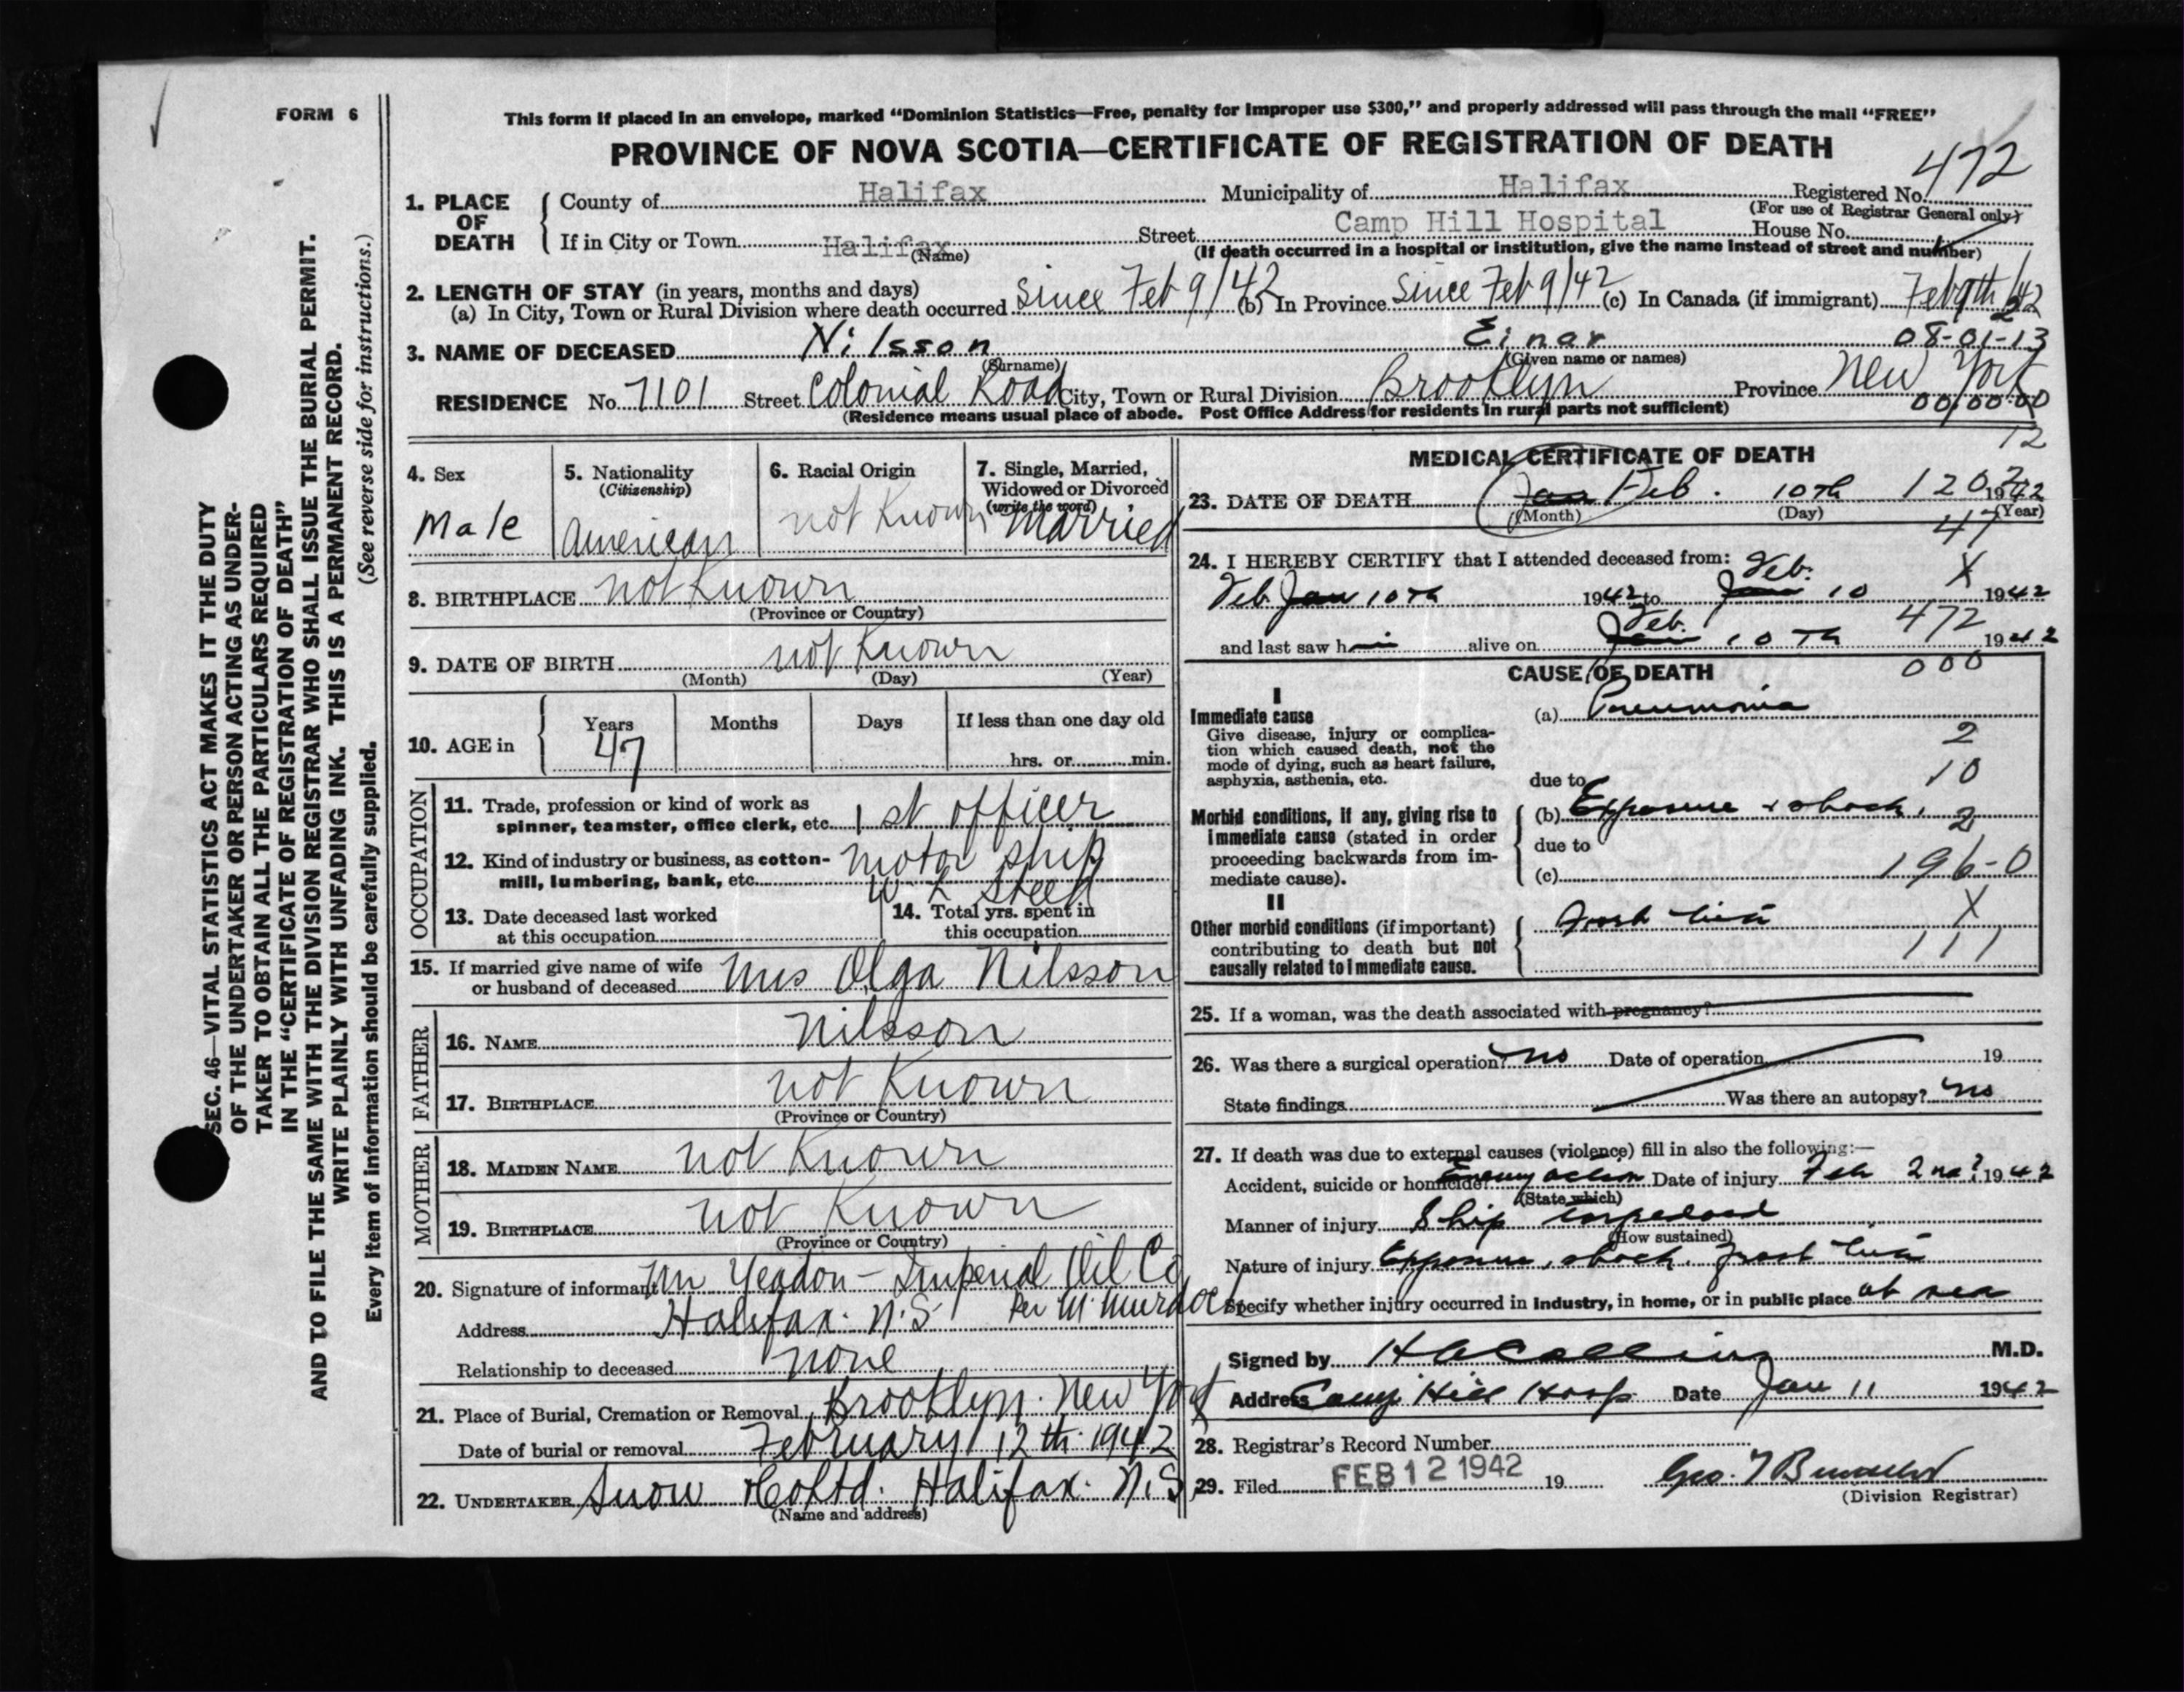 FORM 6
This form if placed in an envelope, marked “Dominion Statistics—Free, penalty for improper use $300,” and properly addressed will pass through the mail “FREE”
PROVINCE OF NOVA SCOTIA—CERTIFICATE OF REGISTRATION OF DEATH
472
1. PLACE OF DEATH
County of Halifax Municipality of Halifax Registered No.
(For use of Registrar General only)
If in City or Town Halifax Street Camp Hill Hospital House No.
(Name) (If death occurred in a hospital or institution, give the name instead of street and number)
2. LENGTH OF STAY (in years, months and days)
(a) In City, Town or Rural Division where death occurred since Feb 9/42 (b) In Province since Feb 9/42 (c) In Canada (if immigrant) Feb 9th/42
3. NAME OF DECEASED Nilsson Einar 08-01-13
(Surname) (Given name or names)
RESIDENCE No. 7101 Street Colonial Road City, Town or Rural Division Brooklyn Province New York
(Residence means usual place of abode. Post Office Address for residents in rural parts not sufficient) 00,00.00
4. Sex
Male
5. Nationality
(Citizenship)
American
6. Racial Origin
not Known
7. Single, Married,
Widowed or Divorced
(write the word)
Married
8. BIRTHPLACE not Known
(Province or Country)
9. DATE OF BIRTH not Known
(Month) (Day) (Year)
10. AGE in Years Months Days If less than one day old
47 hrs. or min.
OCCUPATION
11. Trade, profession or kind of work as
spinner, teamster, office clerk, etc. 1st officer
12. Kind of industry or business, as cotton-
mill, lumbering, bank, etc. motor ship
W L Steed
13. Date deceased last worked
at this occupation
14. Total yrs. spent in
this occupation
15. If married give name of wife
or husband of deceased Mrs Olga Nilsson
FATHER
16. NAME Nilsson
17. BIRTHPLACE not Known
(Province or Country)
MOTHER
18. MAIDEN NAME not Known
19. BIRTHPLACE not Known
(Province or Country)
20. Signature of informant Mr Yeadon - Imperial Oil Co
Address Halifax. N.S. Per M. Murdoch
Relationship to deceased none
21. Place of Burial, Cremation or Removal Brooklyn. New York
Date of burial or removal February 12th. 1942
22. UNDERTAKER Snow & Co Ltd. Halifax. N.S.
(Name and address)
12
MEDICAL CERTIFICATE OF DEATH
23. DATE OF DEATH Jan Feb. 10th 1202 1942
(Month) (Day) (Year)
47
24. I HEREBY CERTIFY that I attended deceased from:
Feb Jan 10th 1942 to Jan Feb. 10 1942
X
472
and last saw him alive on Jan Feb. 10th 1942
CAUSE OF DEATH
000
I
Immediate cause
Give disease, injury or complica-
tion which caused death, not the
mode of dying, such as heart failure,
asphyxia, asthenia, etc.
(a) Pneumonia
2
10
due to
Morbid conditions, if any, giving rise to
immediate cause (stated in order
proceeding backwards from im-
mediate cause).
(b) Exposure & shock.
2
due to
(c) 196-0
II
Other morbid conditions (if important)
contributing to death but not
causally related to immediate cause.
Frost bite
X
111
25. If a woman, was the death associated with pregnancy?
26. Was there a surgical operation? no Date of operation 19
State findings Was there an autopsy? no
27. If death was due to external causes (violence) fill in also the following:—
Accident, suicide or homicide? Enemy action Date of injury Feb 2nd? 1942
(State which)
Manner of injury Ship torpedoed
(How sustained)
Nature of injury Exposure, shock, frost bite
Specify whether injury occurred in industry, in home, or in public place at sea
Signed by H A Collins M.D.
Address Camp Hill Hosp. Date Jan 11 1942
28. Registrar's Record Number
29. Filed FEB 12 1942 19
(Division Registrar)
SEC. 46—VITAL STATISTICS ACT MAKES IT THE DUTY
OF THE UNDERTAKER OR PERSON ACTING AS UNDER-
TAKER TO OBTAIN ALL THE PARTICULARS REQUIRED
IN THE “CERTIFICATE OF REGISTRATION OF DEATH”
AND TO FILE THE SAME WITH THE DIVISION REGISTRAR WHO SHALL ISSUE THE BURIAL PERMIT.
WRITE PLAINLY WITH UNFADING INK. THIS IS A PERMANENT RECORD.
(See reverse side for instructions.)
Every item of information should be carefully supplied.